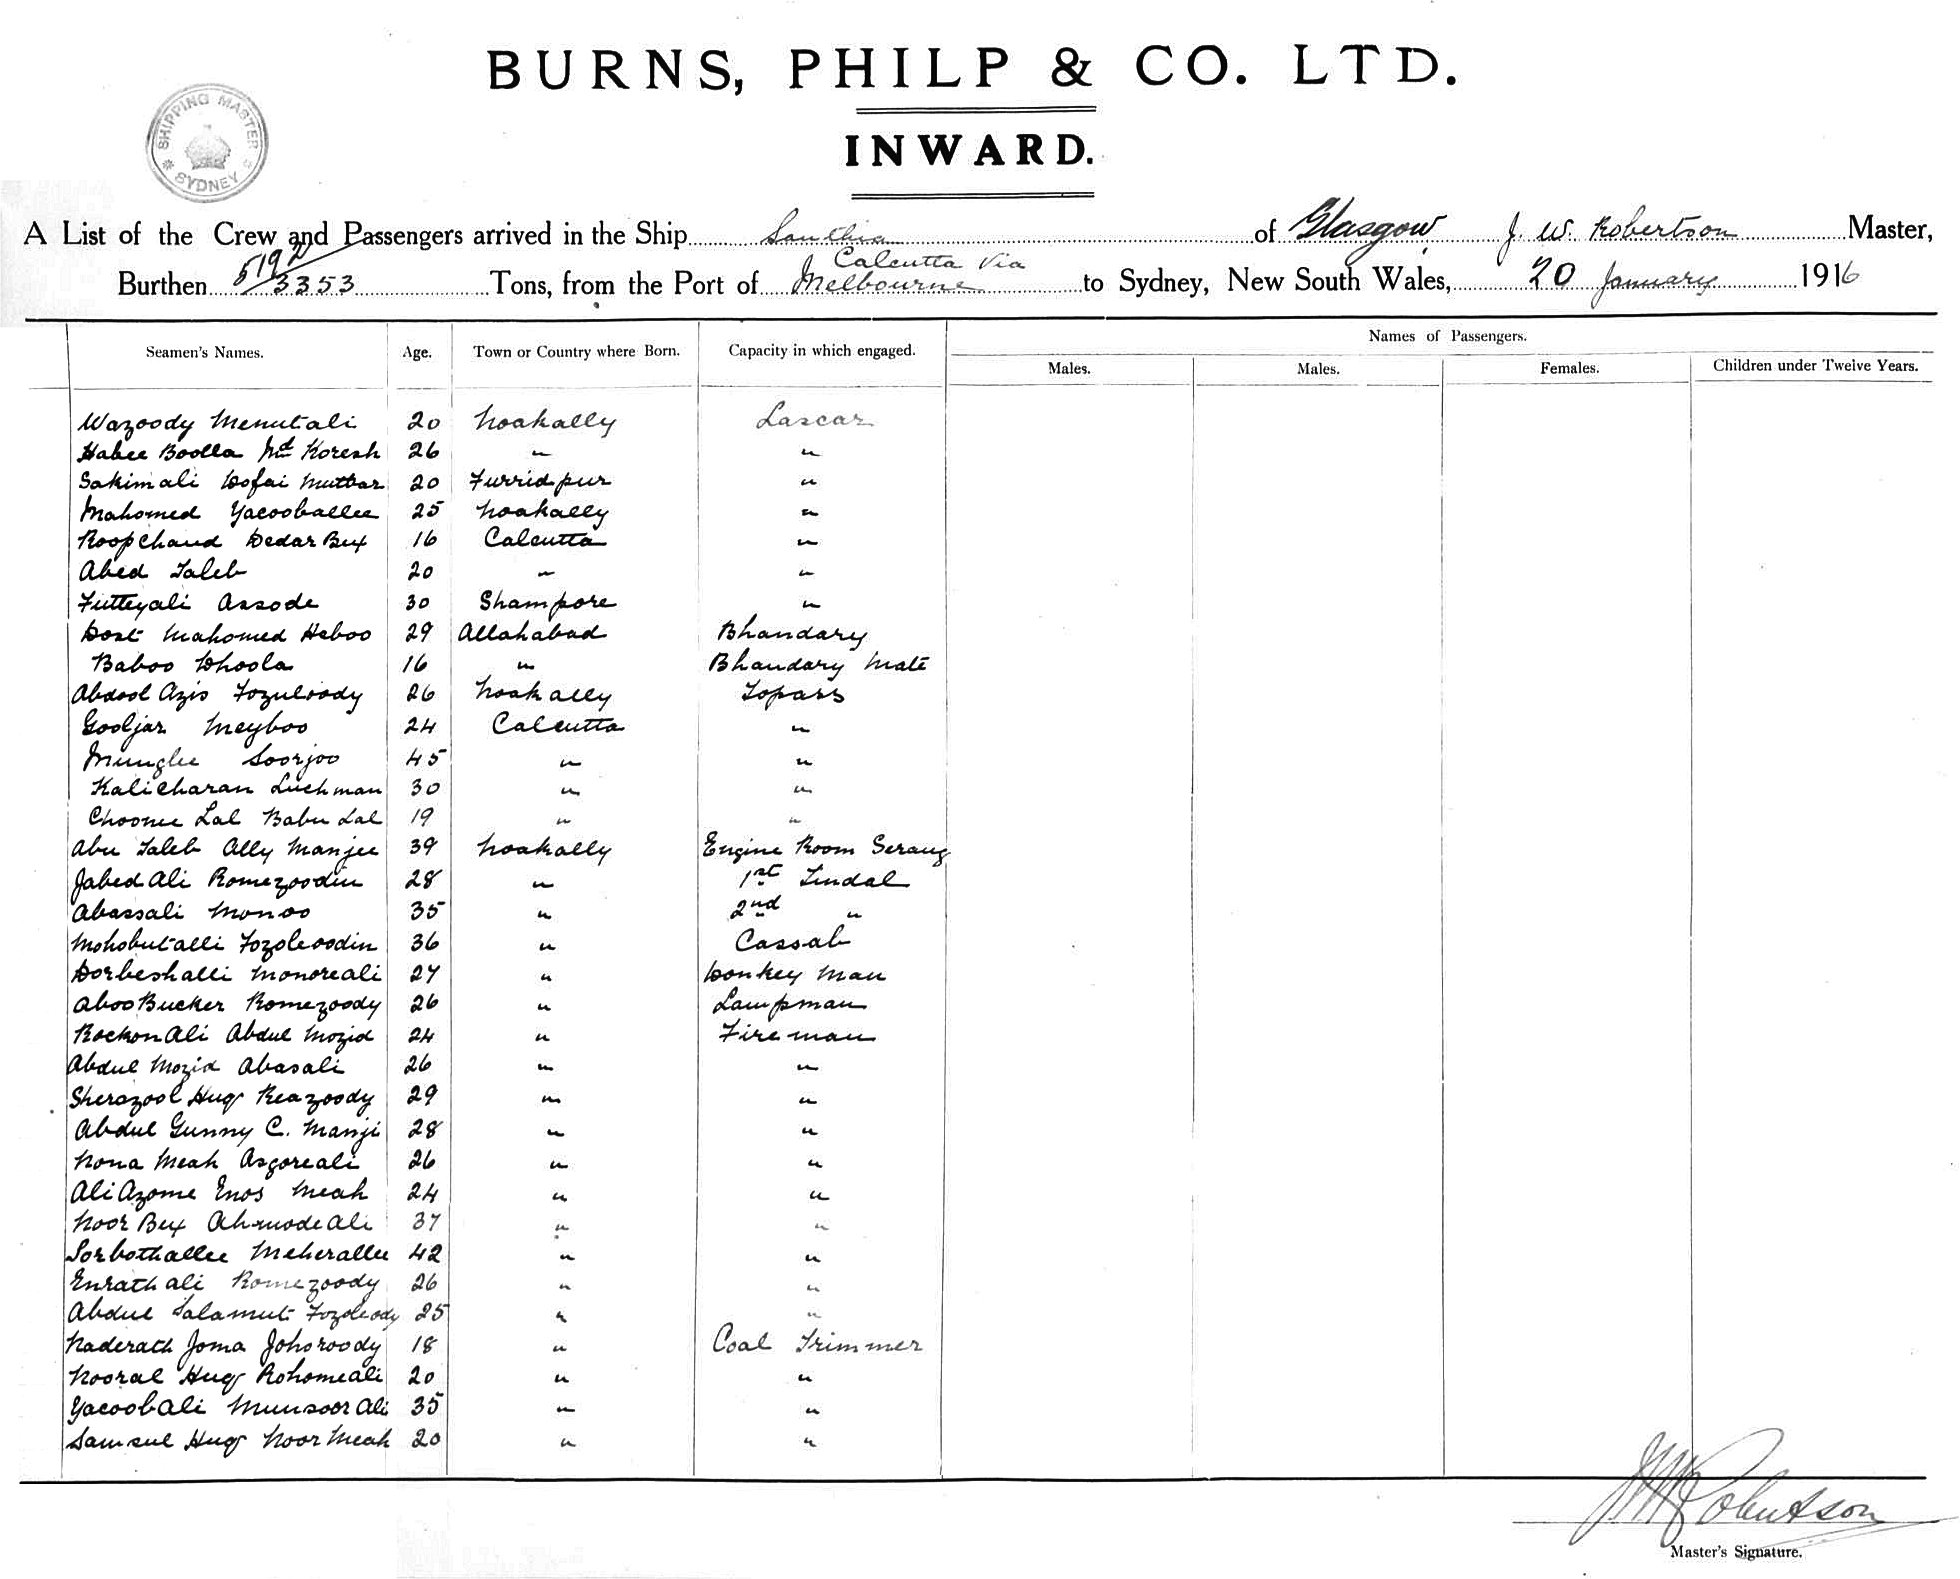 BURNS, PHILP & CO. LTD.
SHIPPING MASTER SYDNEY
INWARD.
A List of the Crew and Passengers arrived in the Ship Santhia of Glasgow J. W. Robertson Master,
Burthen 5192/3353 Tons, from the Port of Calcutta via Melbourne to Sydney, New South Wales, 20 January 1916
Seamen's Names. Age. Town or Country where Born. Capacity in which engaged. Names of Passengers.
Males. Males. Females. Children under Twelve Years.
Wazoody Menutali 20 Noakally Lascar
Habee Boolla Md Koresh 26 " "
Sakimali Dofai Mutbar 20 Furridpur "
Mahomed Yacooballee 25 Noakally "
Roopchand Dedar Bux 16 Calcutta "
Abed Taleb 20 " "
Futteyali Assode 30 Shampore "
Dost Mahomed Heboo 29 Allahabad Bhandary
Baboo Dhoola 16 " Bhandary Mate
Abdool Azis Fozuloody 26 Noakally Topass
Gooljar Meyboo 24 Calcutta "
Munglee Soorjoo 45 " "
Kalicharan Luchman 30 " "
Choonee Lal Babu Lal 19 " "
Abu Taleb Ally Manjee 39 Noakally Engine Room Serang
Jabed Ali Romezoodin 28 " 1st Tindal
Abassali Monoo 35 " 2nd "
Mohobutalli Fozoloodin 36 " Cassab
Dorbeshalli Monoreali 27 " Donkey Man
Aboo Bucker Romezoody 26 " Lampman
Rockon Ali Abdul Mozid 24 " Fireman
Abdul Mozid Abasali 26 " "
Sherazool Huq Reazoody 29 " "
Abdul Gunny C. Manji 28 " "
Nona Meah Asgoreali 26 " "
Ali Azome Enos Meah 24 " "
Noor Bux Ahmode Ali 37 " "
Sorbothallee Meherallee 42 " "
Enrath ali Romezoody 26 " "
Abdul Salamut Fozoloody 25 " "
Naderath Joma Johoroody 18 " Coal Trimmer
Nooral Huq Rohomeali 20 " "
Yacoob Ali Munsoor Ali 35 " "
Samsul Huq Noor Meah 20 " "
J W Robertson
Master's Signature.